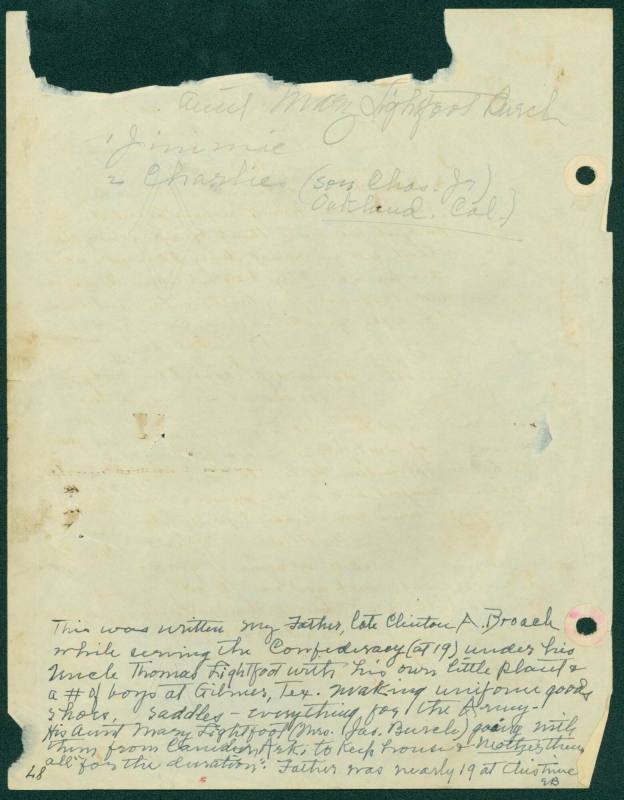 Aunt Mary Lightfoot Burch
1 Jimmie
2 Charlie (son Chas. Jr)
Oakland. Cal.)
This was written my Father, late Clinton A. Broach
while serving the Confederacy (at 19) under his
Uncle Thomas Lightfoot with his own little plant &
a # of boys at Gilmer, Tex. making uniform goods
shoes, saddles - everything for the Army -
His Aunt Mary Lightfoot (Mrs. Jas. Burch) going with
them from Camden, Ark. to keep house & Mother them
all "for the duration". Father was nearly 19 at this time
EB
48